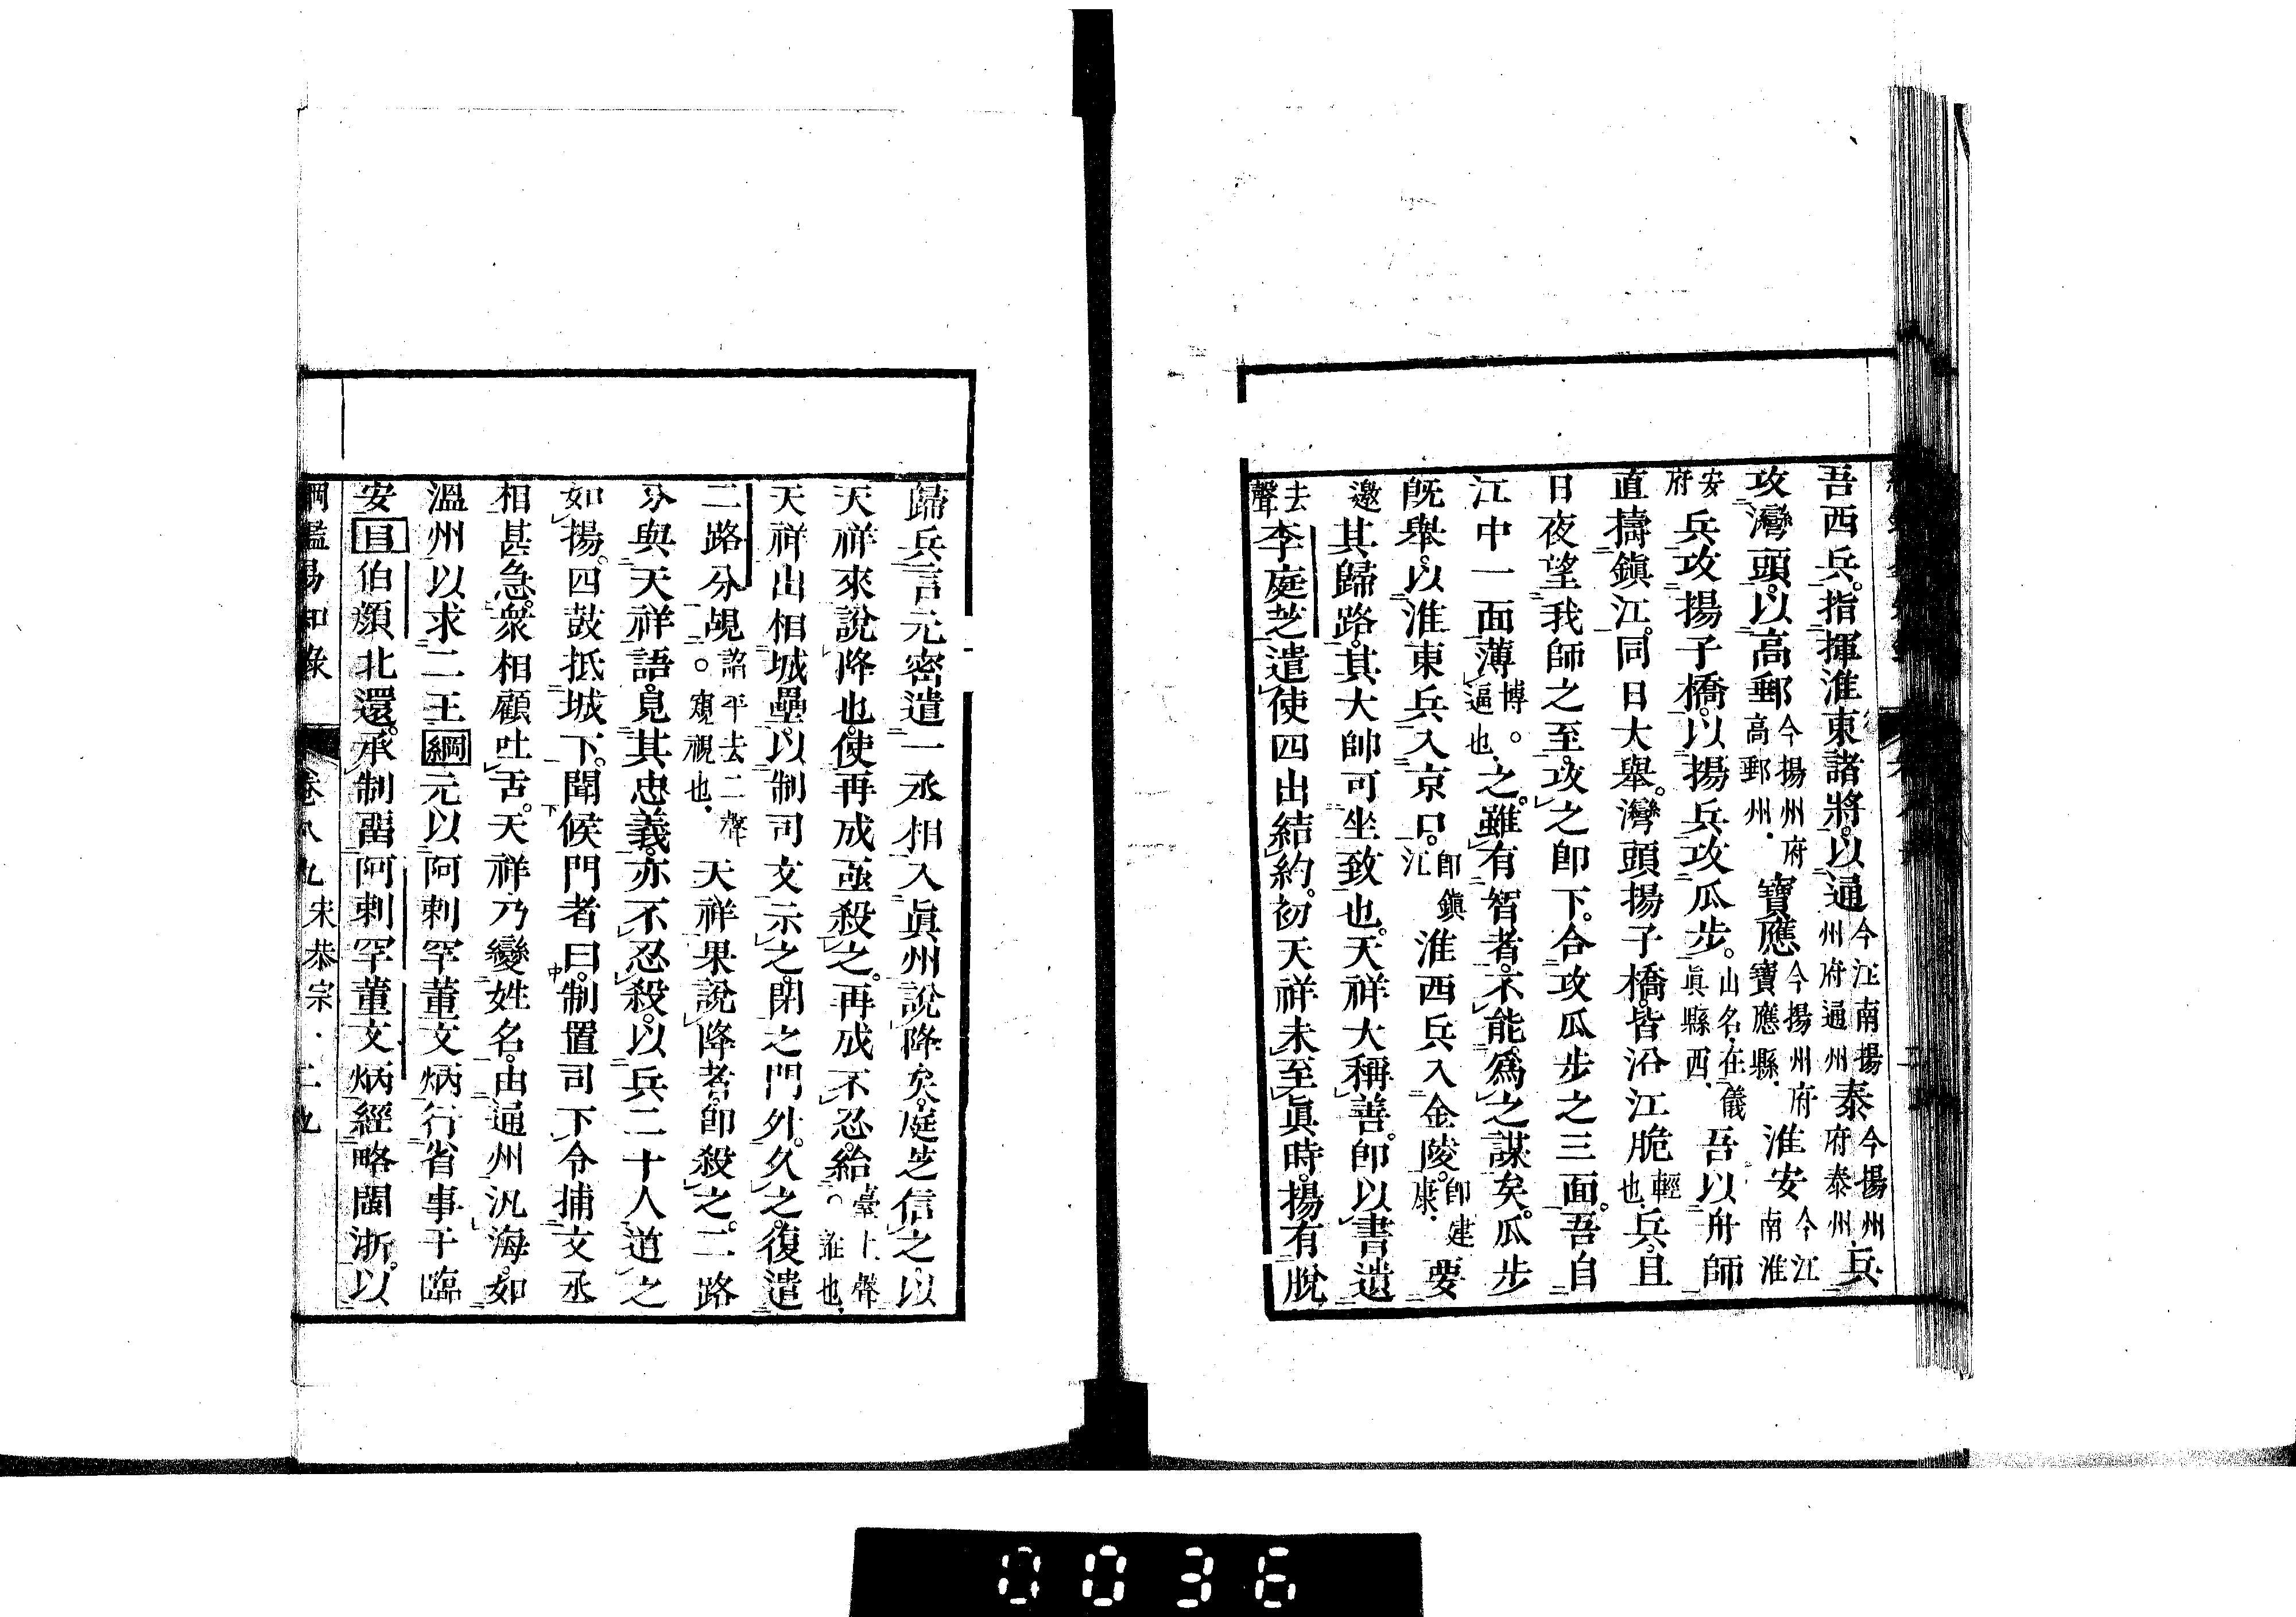 吾西兵。指揮淮東諸將。以通今江南揚州府通州泰今揚州府泰州兵
攻灣頭。以高郵今揚州府高郵州寶應今揚州府寶應縣淮安今江南淮
安府兵攻揚子橋。以揚兵攻瓜步。山名在儀眞縣西吾以舟師
直擣鎭江。同日大舉。灣頭揚子橋。皆沿江脆輕也兵。且
日夜望我師之至。攻之卽下。合攻瓜步之三面。吾自
江中一面薄博。逼也之。雖有智者。不能爲之謀矣。瓜步
旣舉。以淮東兵入京口。卽鎭江淮西兵入金陵。卽建康要
邀其歸路。其大帥可坐致也。天祥大稱善。卽以書遺
去聲李庭芝遣使四出結約。初天祥未至眞時。揚有脫
歸兵言元密遣一丞相入眞州說降矣。庭芝信之。以
天祥來說降也。使再成亟殺之。再成不忍。紿臺上聲。誑也
天祥出相城壘。以制司文示之。閉之門外。久之。復遣
二路分覘諂平去二聲。窺視也天祥果說降者。卽殺之。二路
分與天祥語。見其忠義。亦不忍殺。以兵二十人道之
如揚。四鼓抵城下。聞候門者曰。制置司下令捕文丞
相甚急。衆相顧吐舌。天祥乃變姓名。由通州汎海。如
溫州以求二王綱元以阿剌罕董文炳行省事于臨
安目伯顏北還。承制畱阿剌罕董文炳經略閩浙。以
綱鑑易知錄 卷八九 宋恭宗 二九
0036